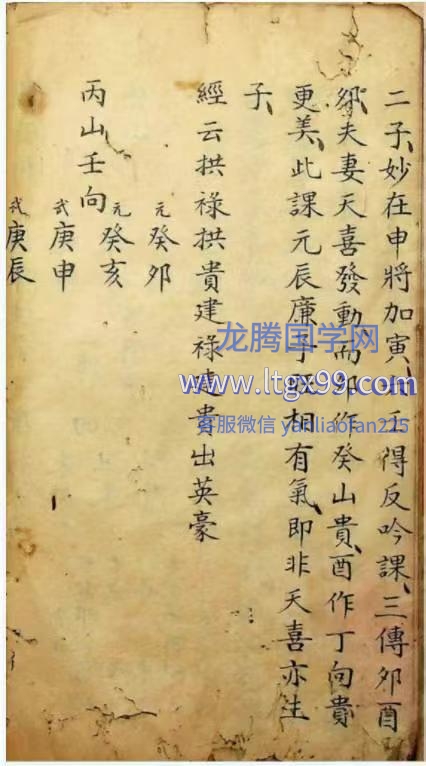 二子妙在申將加寅六壬得反吟課三傳卯酉
卯夫妻天喜發動而卯作癸山貴酉作丁向貴
更美此課元辰廉子旺相有氣即非天喜亦生
子
經云拱祿拱貴建祿建貴出英豪
元癸卯
元癸亥
丙山壬向
武庚申
武庚辰
龙腾国学网
www.ltgx99.com
客服微信 yanliaofan225